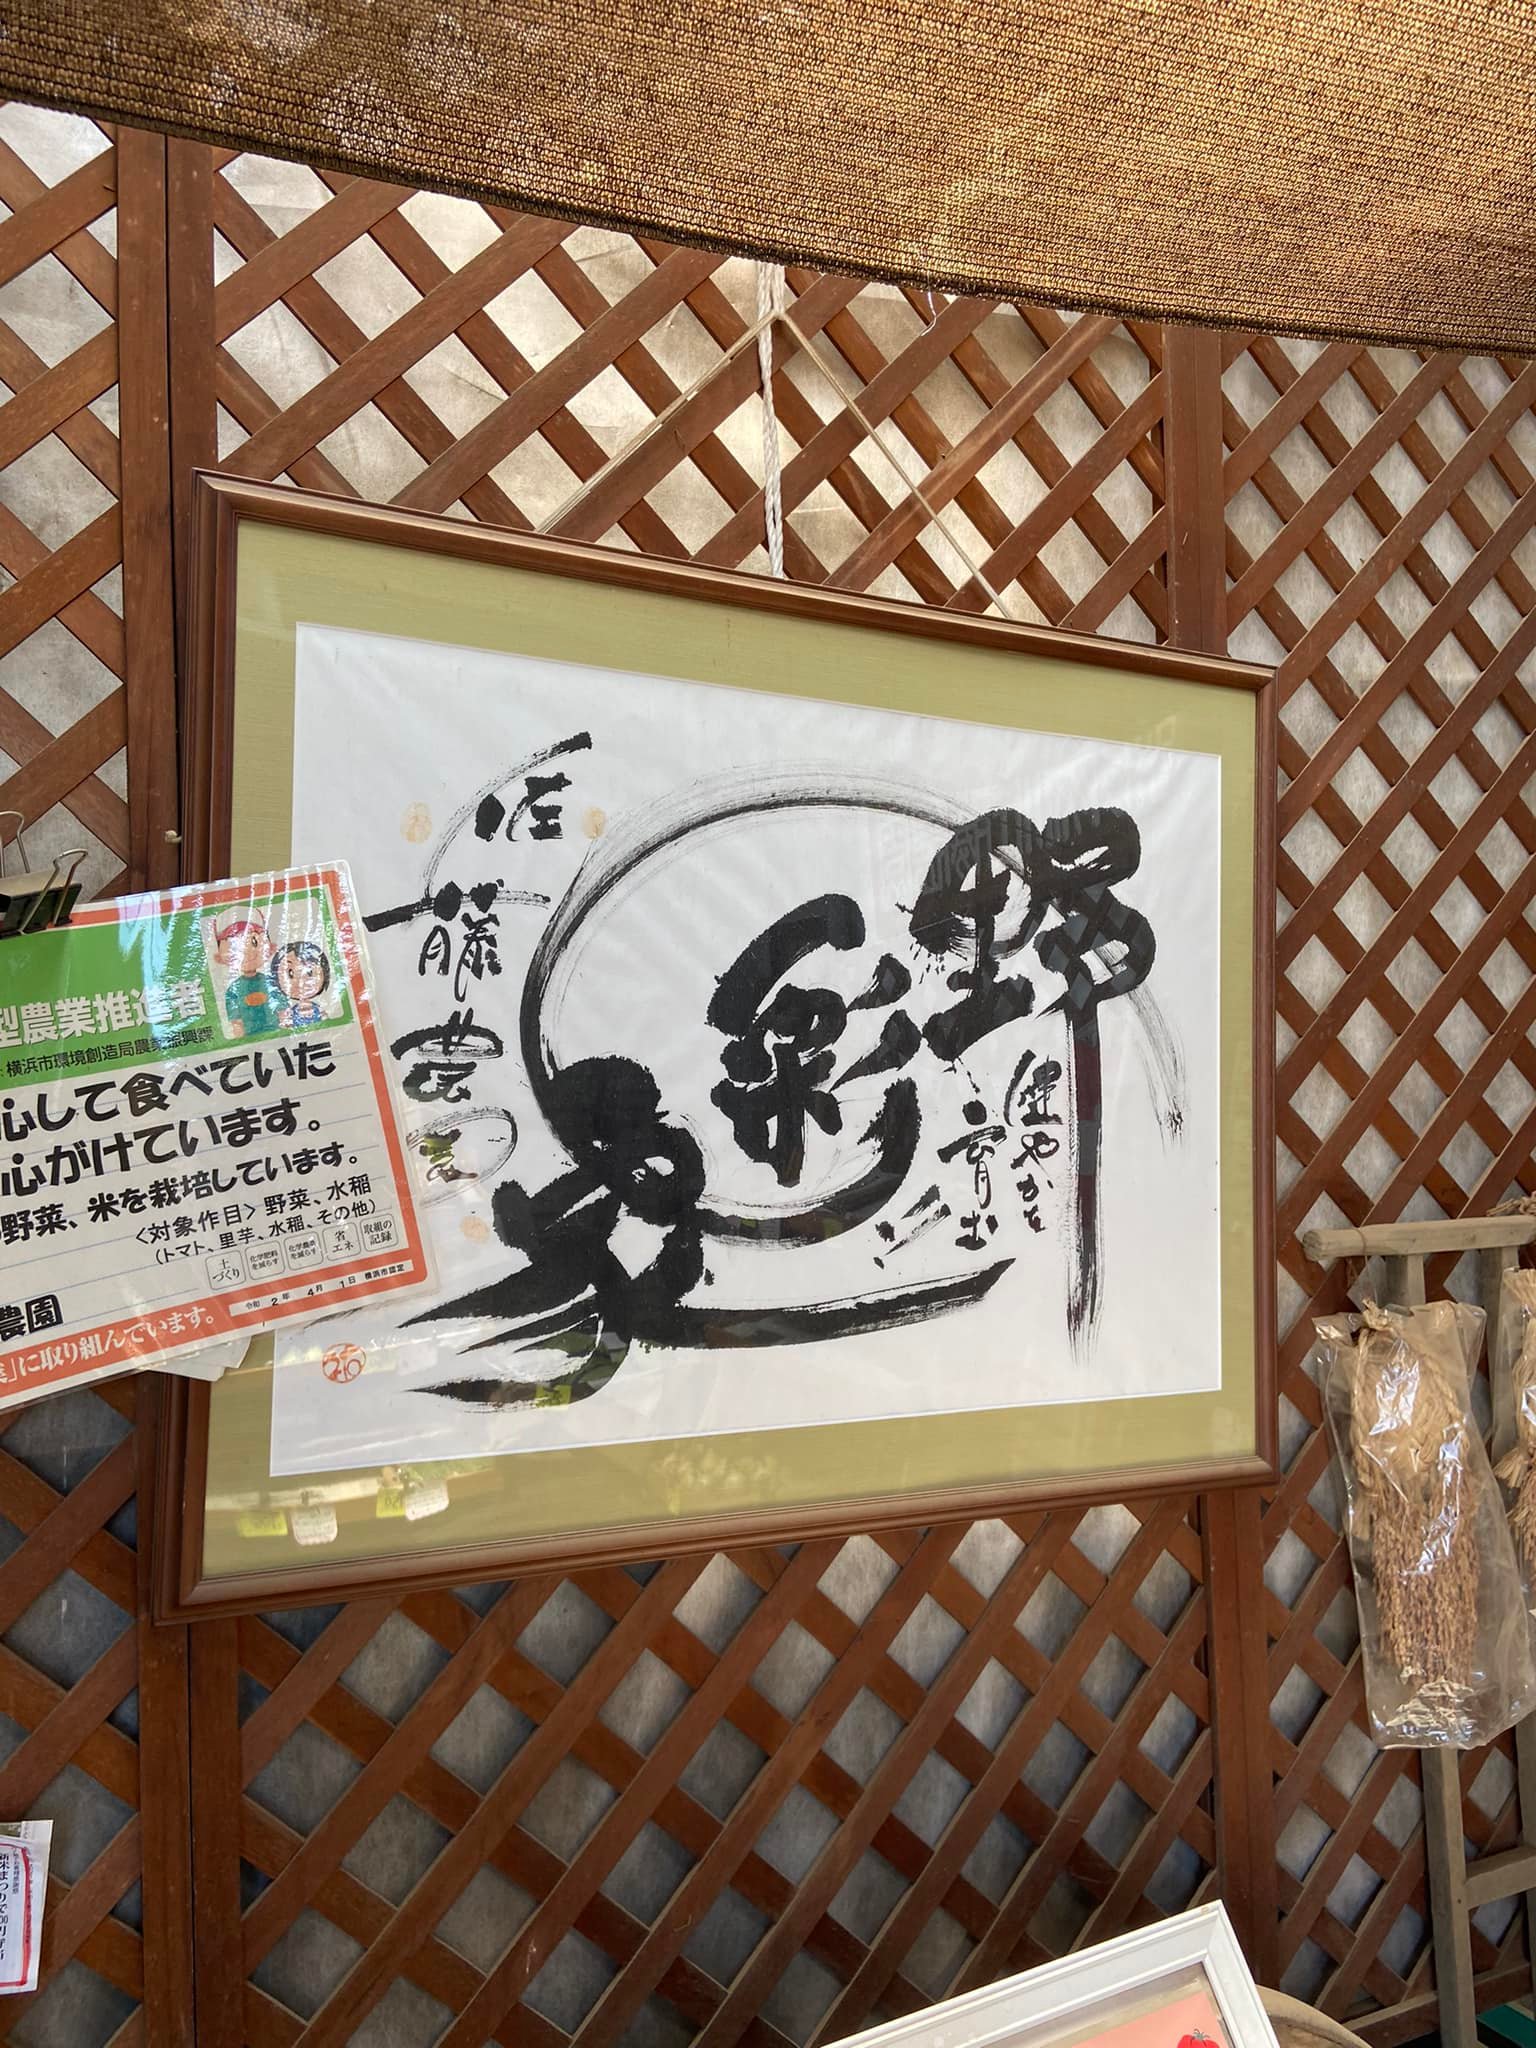 野彩家
健やかを
育む
佐藤農園
型農業推進者
:横浜市環境創造局農業振興課
心して食べていた
心がけています。
野菜、米を栽培しています。
<対象作目> 野菜、水稲
(トマト、里芋、水稲、その他)
土づくり
化学肥料を減らす
化学農薬を減らす
省エネ
取組の記録
令和 2 年 4 月 1 日 横浜市認定
農園
」に取り組んでいます。
新米まつりで